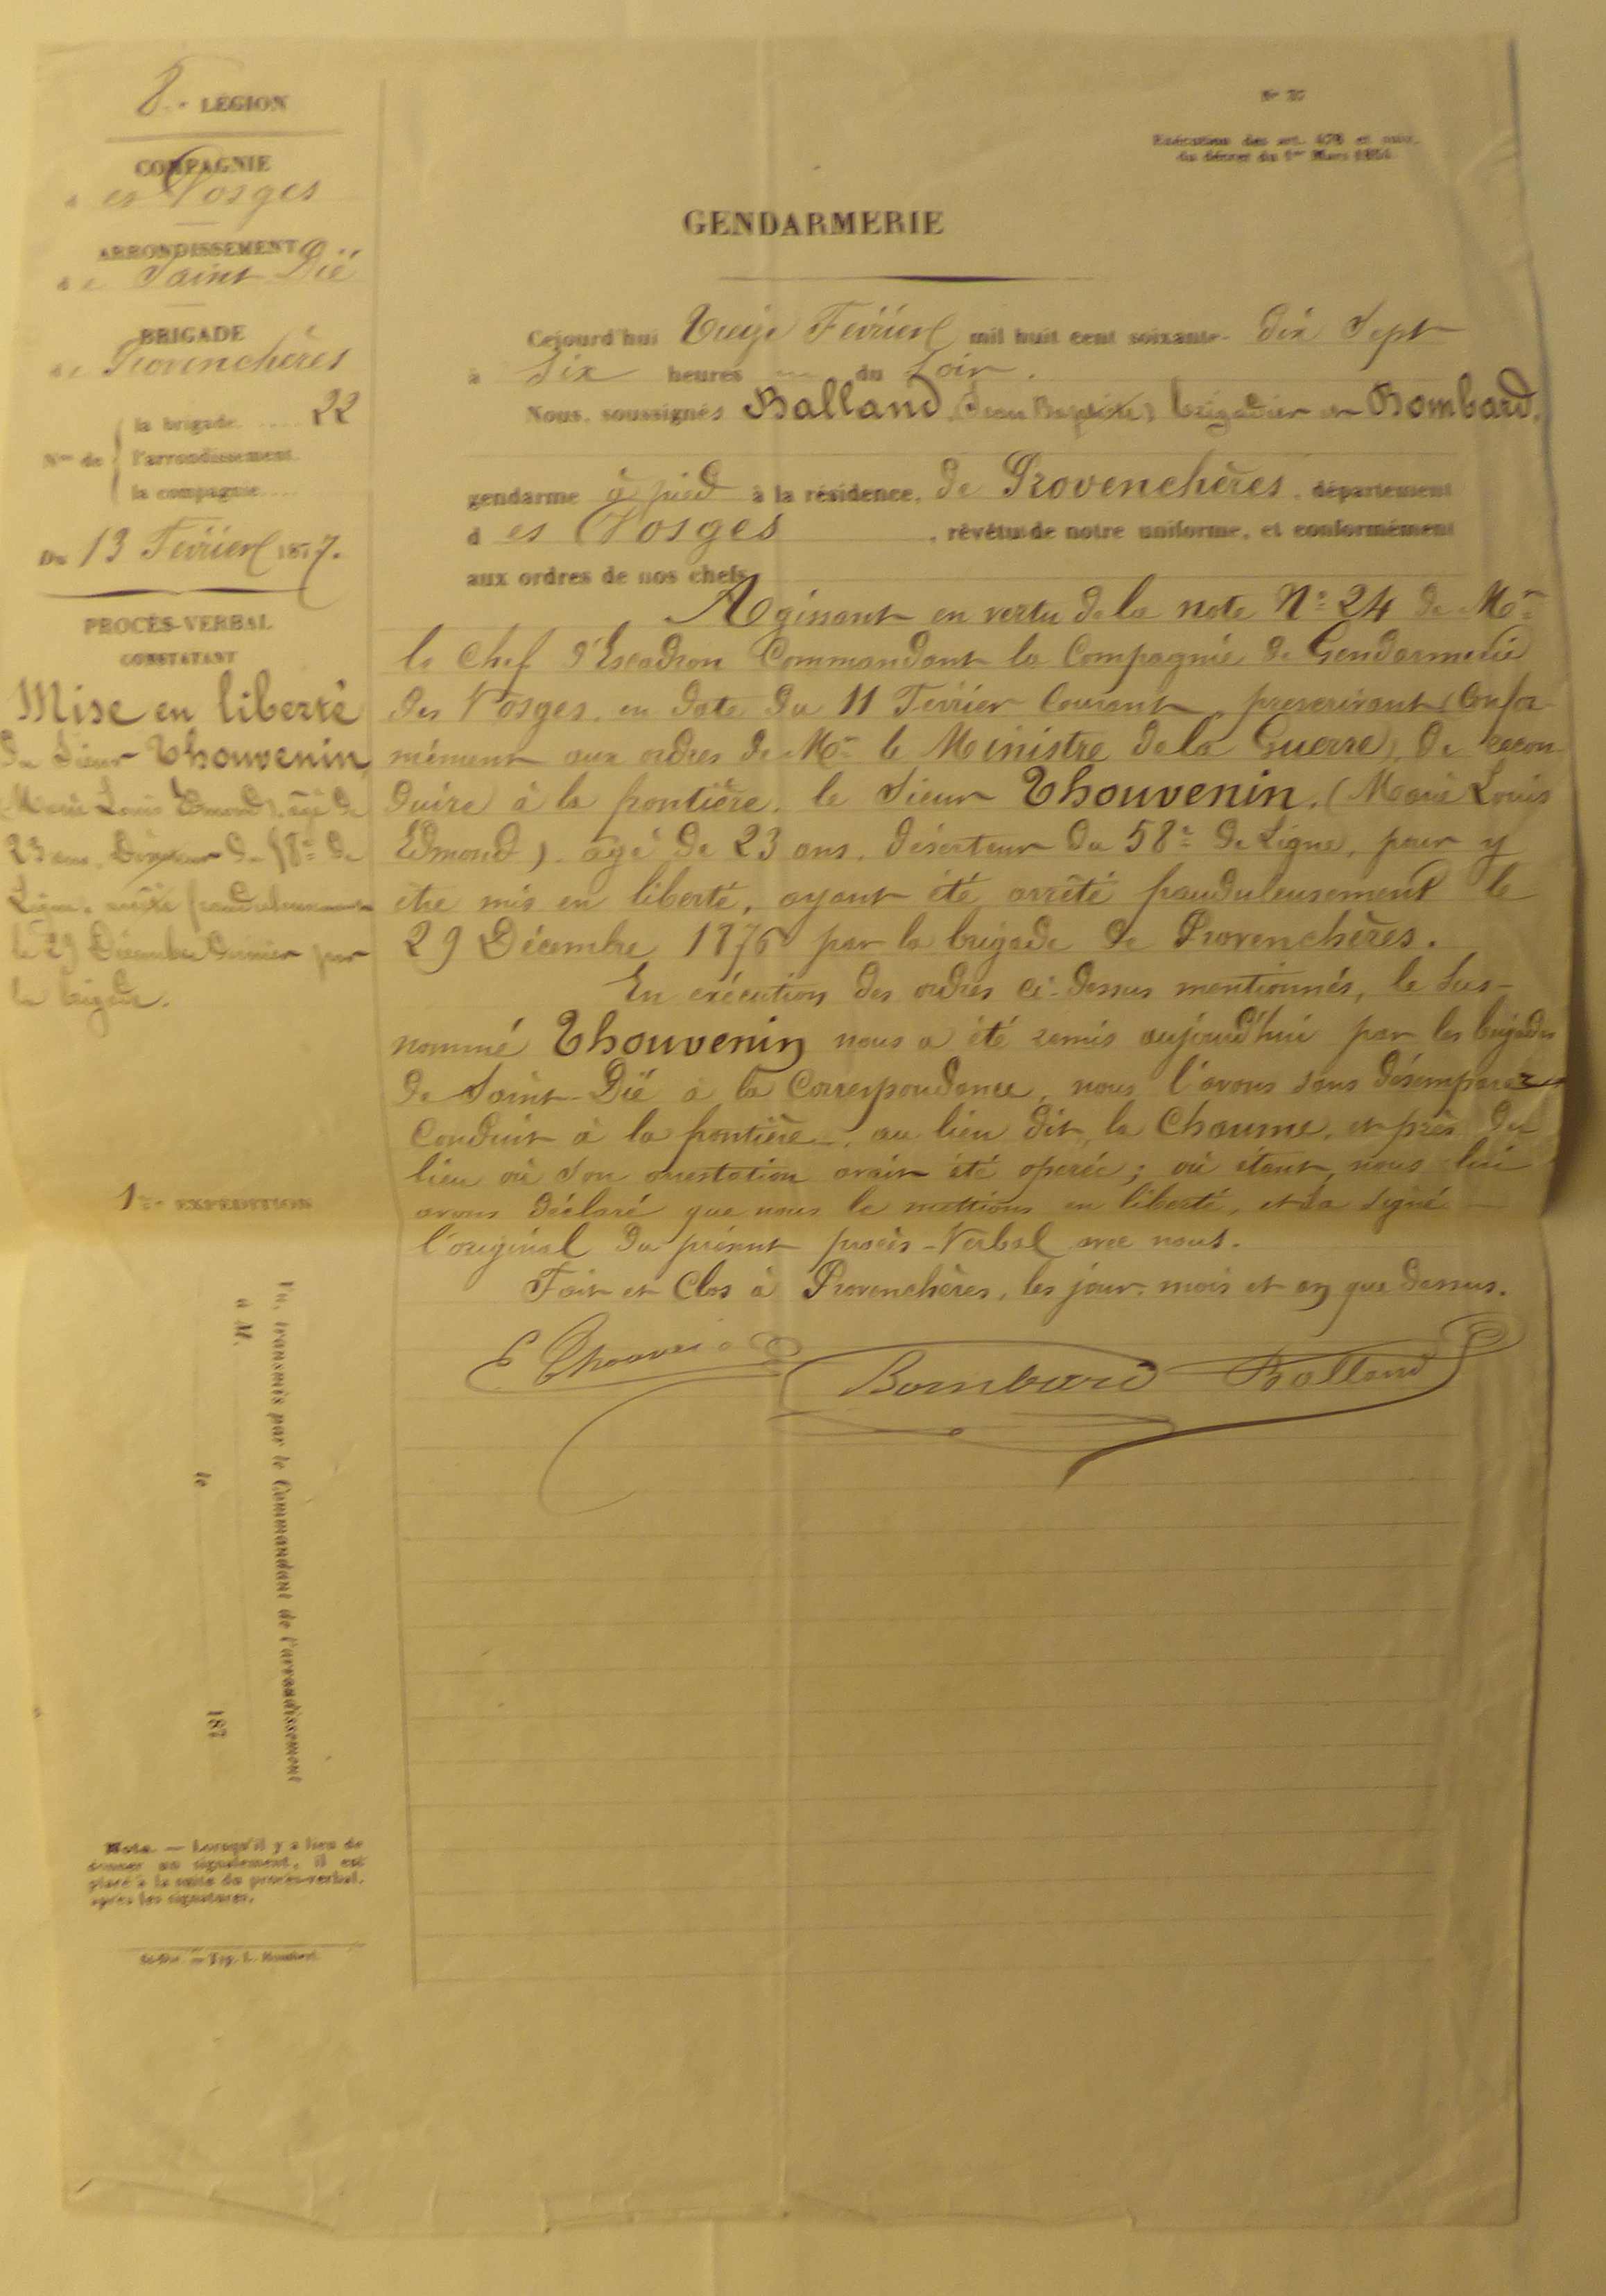 8e LÉGION
COMPAGNIE
des Vosges
ARRONDISSEMENT
de Saint Dié
BRIGADE
de Provenchères
la brigade..... 22
Nos de l'arrondissement.
la compagnie....
Du 13 Février 1877.
PROCÈS-VERBAL
CONSTATANT
Mise en liberté
du Sieur Thouvenin,
(Marie Louis Edmond), âgé de
23 ans, Déserteur du 58e de
Ligne, arrêté frauduleusement
le 29 Décembre dernier par
la brigade.
1re EXPÉDITION
Vu, transmis par le Commandant de l'arrondissement
à M.
le 187
Nota. — Lorsqu'il y a lieu de
donner un signalement, il est
placé à la suite du procès-verbal,
après les signatures.
St-Dié. — Typ. L. Humbert.
Exécution des art. et suiv.
du décret du 1er Mars 1854.
GENDARMERIE
Cejourd'hui treize Février mil huit cent soixante- dix Sept
à Six heures du Soir.
Nous, soussignés Balland (Jean Baptiste) brigadier et Bombard,
gendarme à pied à la résidence, de Provenchères, département
des Vosges, revêtus de notre uniforme, et conformément
aux ordres de nos chefs,
Agissant en vertu de la note No 24 de Mr
le Chef d'Escadron Commandant la Compagnie de Gendarmerie
des Vosges, en date du 11 Février Courant, prescrivant (Confor-
mément aux ordres de Mr le Ministre de la Guerre), de recon-
duire à la frontière, le Sieur Thouvenin, (Marie Louis
Edmond), âgé de 23 ans, déserteur du 58e de Ligne, pour y
être mis en liberté, ayant été arrêté frauduleusement le
29 Décembre 1876 par la brigade de Provenchères.
En exécution des ordres ci-dessus mentionnés, le Sus-
nommé Thouvenin nous a été remis aujourd'hui par les brigades
de Saint-Dié à la Correspondance, nous l'avons sans désemparer
Conduit à la frontière, au lieu dit, la Chaume, et près du
lieu où son arrestation avait été opérée; où étant, nous lui
avons déclaré que nous le mettions en liberté, et a signé
l'original du présent procès-Verbal avec nous.
Fait et Clos à Provenchères, les jour, mois et an que dessus.
E Thouvenin Bombard Balland